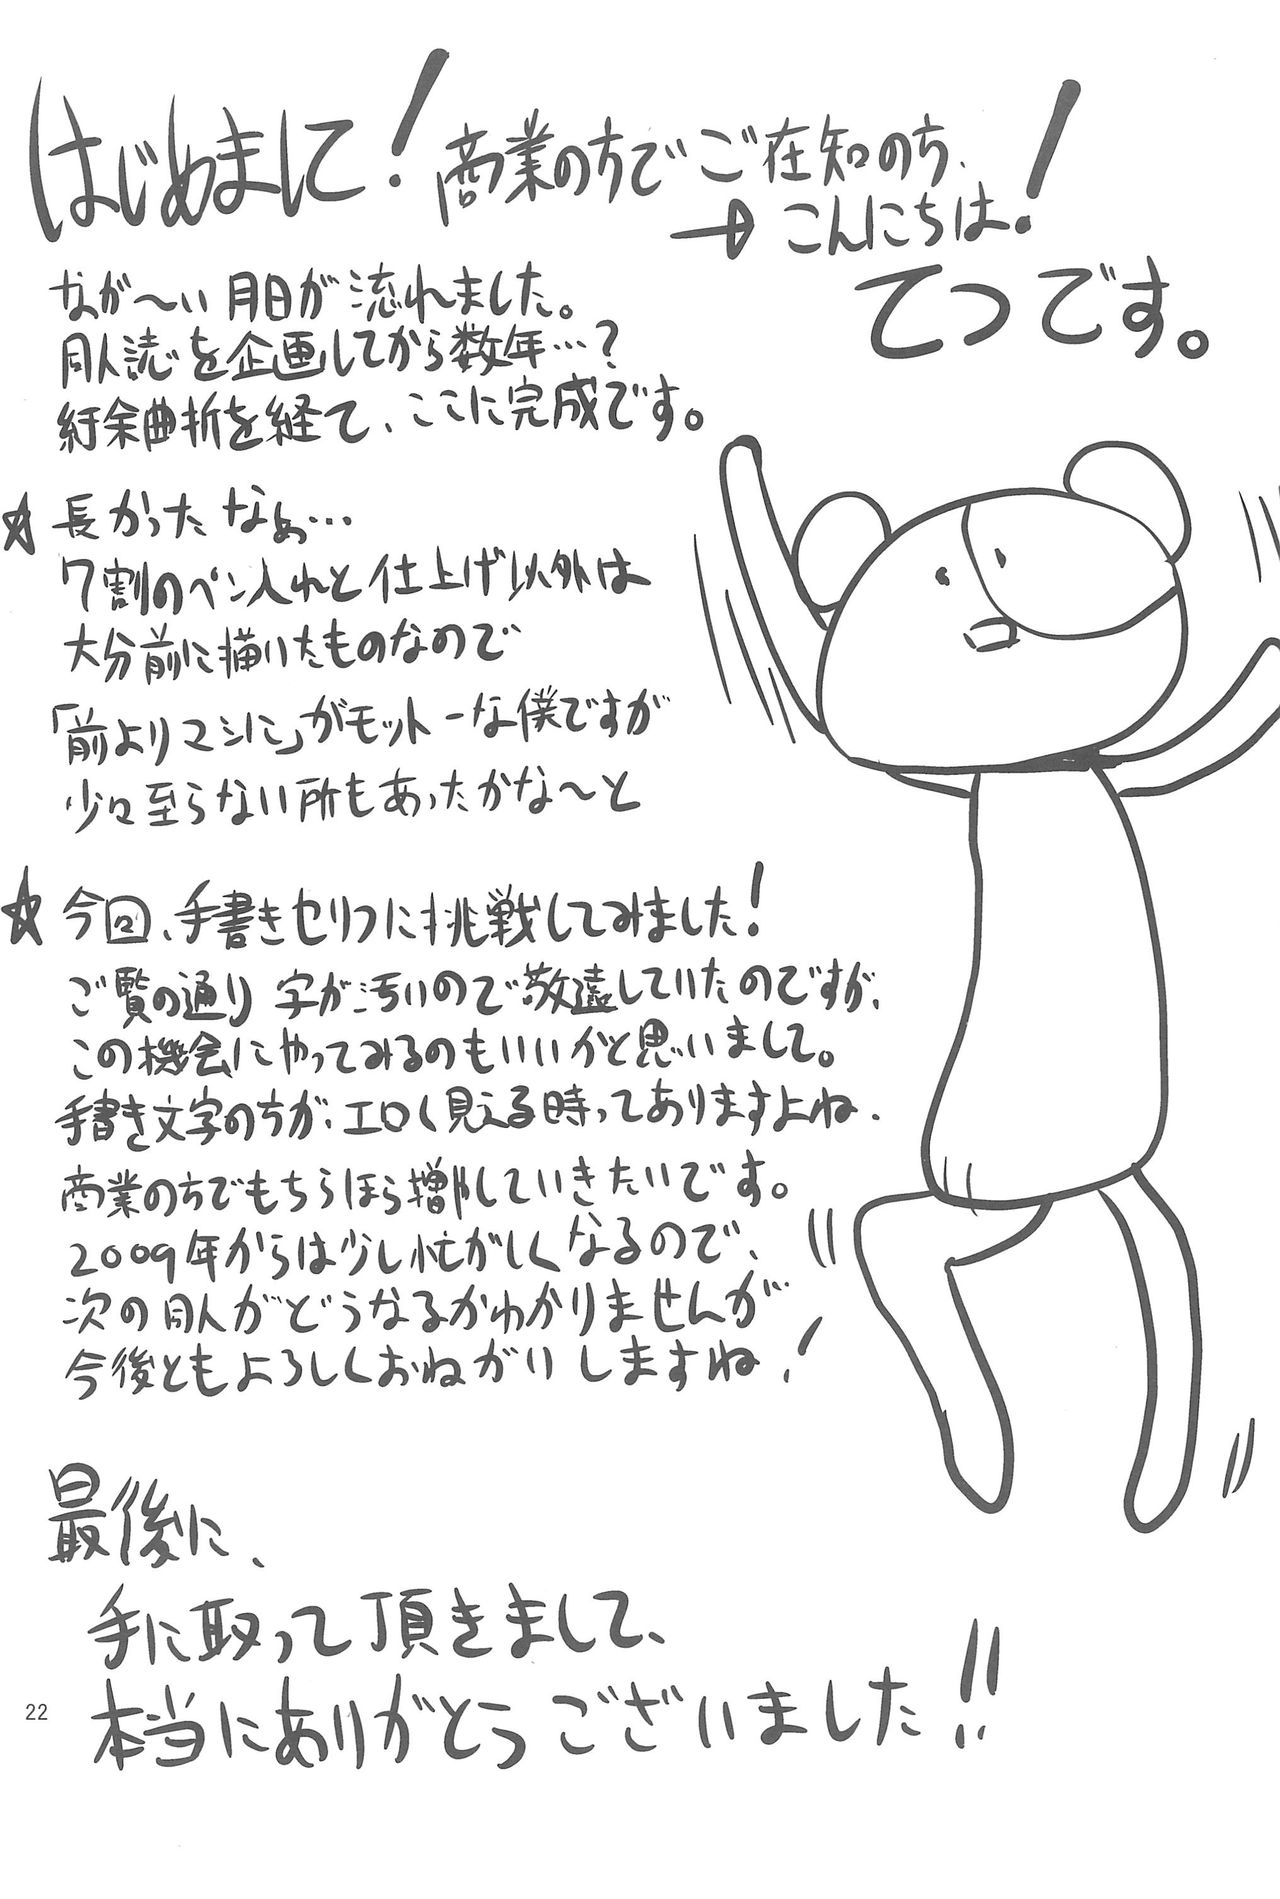 はじめまして!
商業の方でご在知の方、
→こんにちは!
てつです。
なが〜い月日が流れました。
同人誌を企画してから数年…?
紆余曲折を経て、ここに完成です。
☆長かったなぁ…
7割のペン入れと仕上げ以外は
大分前に描いたものなので
「前よりマシに」がモットーな僕ですが
少々至らない所もあったかな〜と
☆今回、手書きセリフに挑戦してみました!
ご覧の通り字が汚いので敬遠していたのですが、
この機会にやってみるのもいいかと思いまして。
手書き文字の方が、エロく見える時ってありますよね.
商業の方でもちらほら増やしていきたいです。
2009年からは少し忙がしくなるので、
次の同人がどうなるかわかりませんが
今後ともよろしくおねがいしますね!
最後に、
手に取って頂きまして、
本当にありがとうございました!!
22